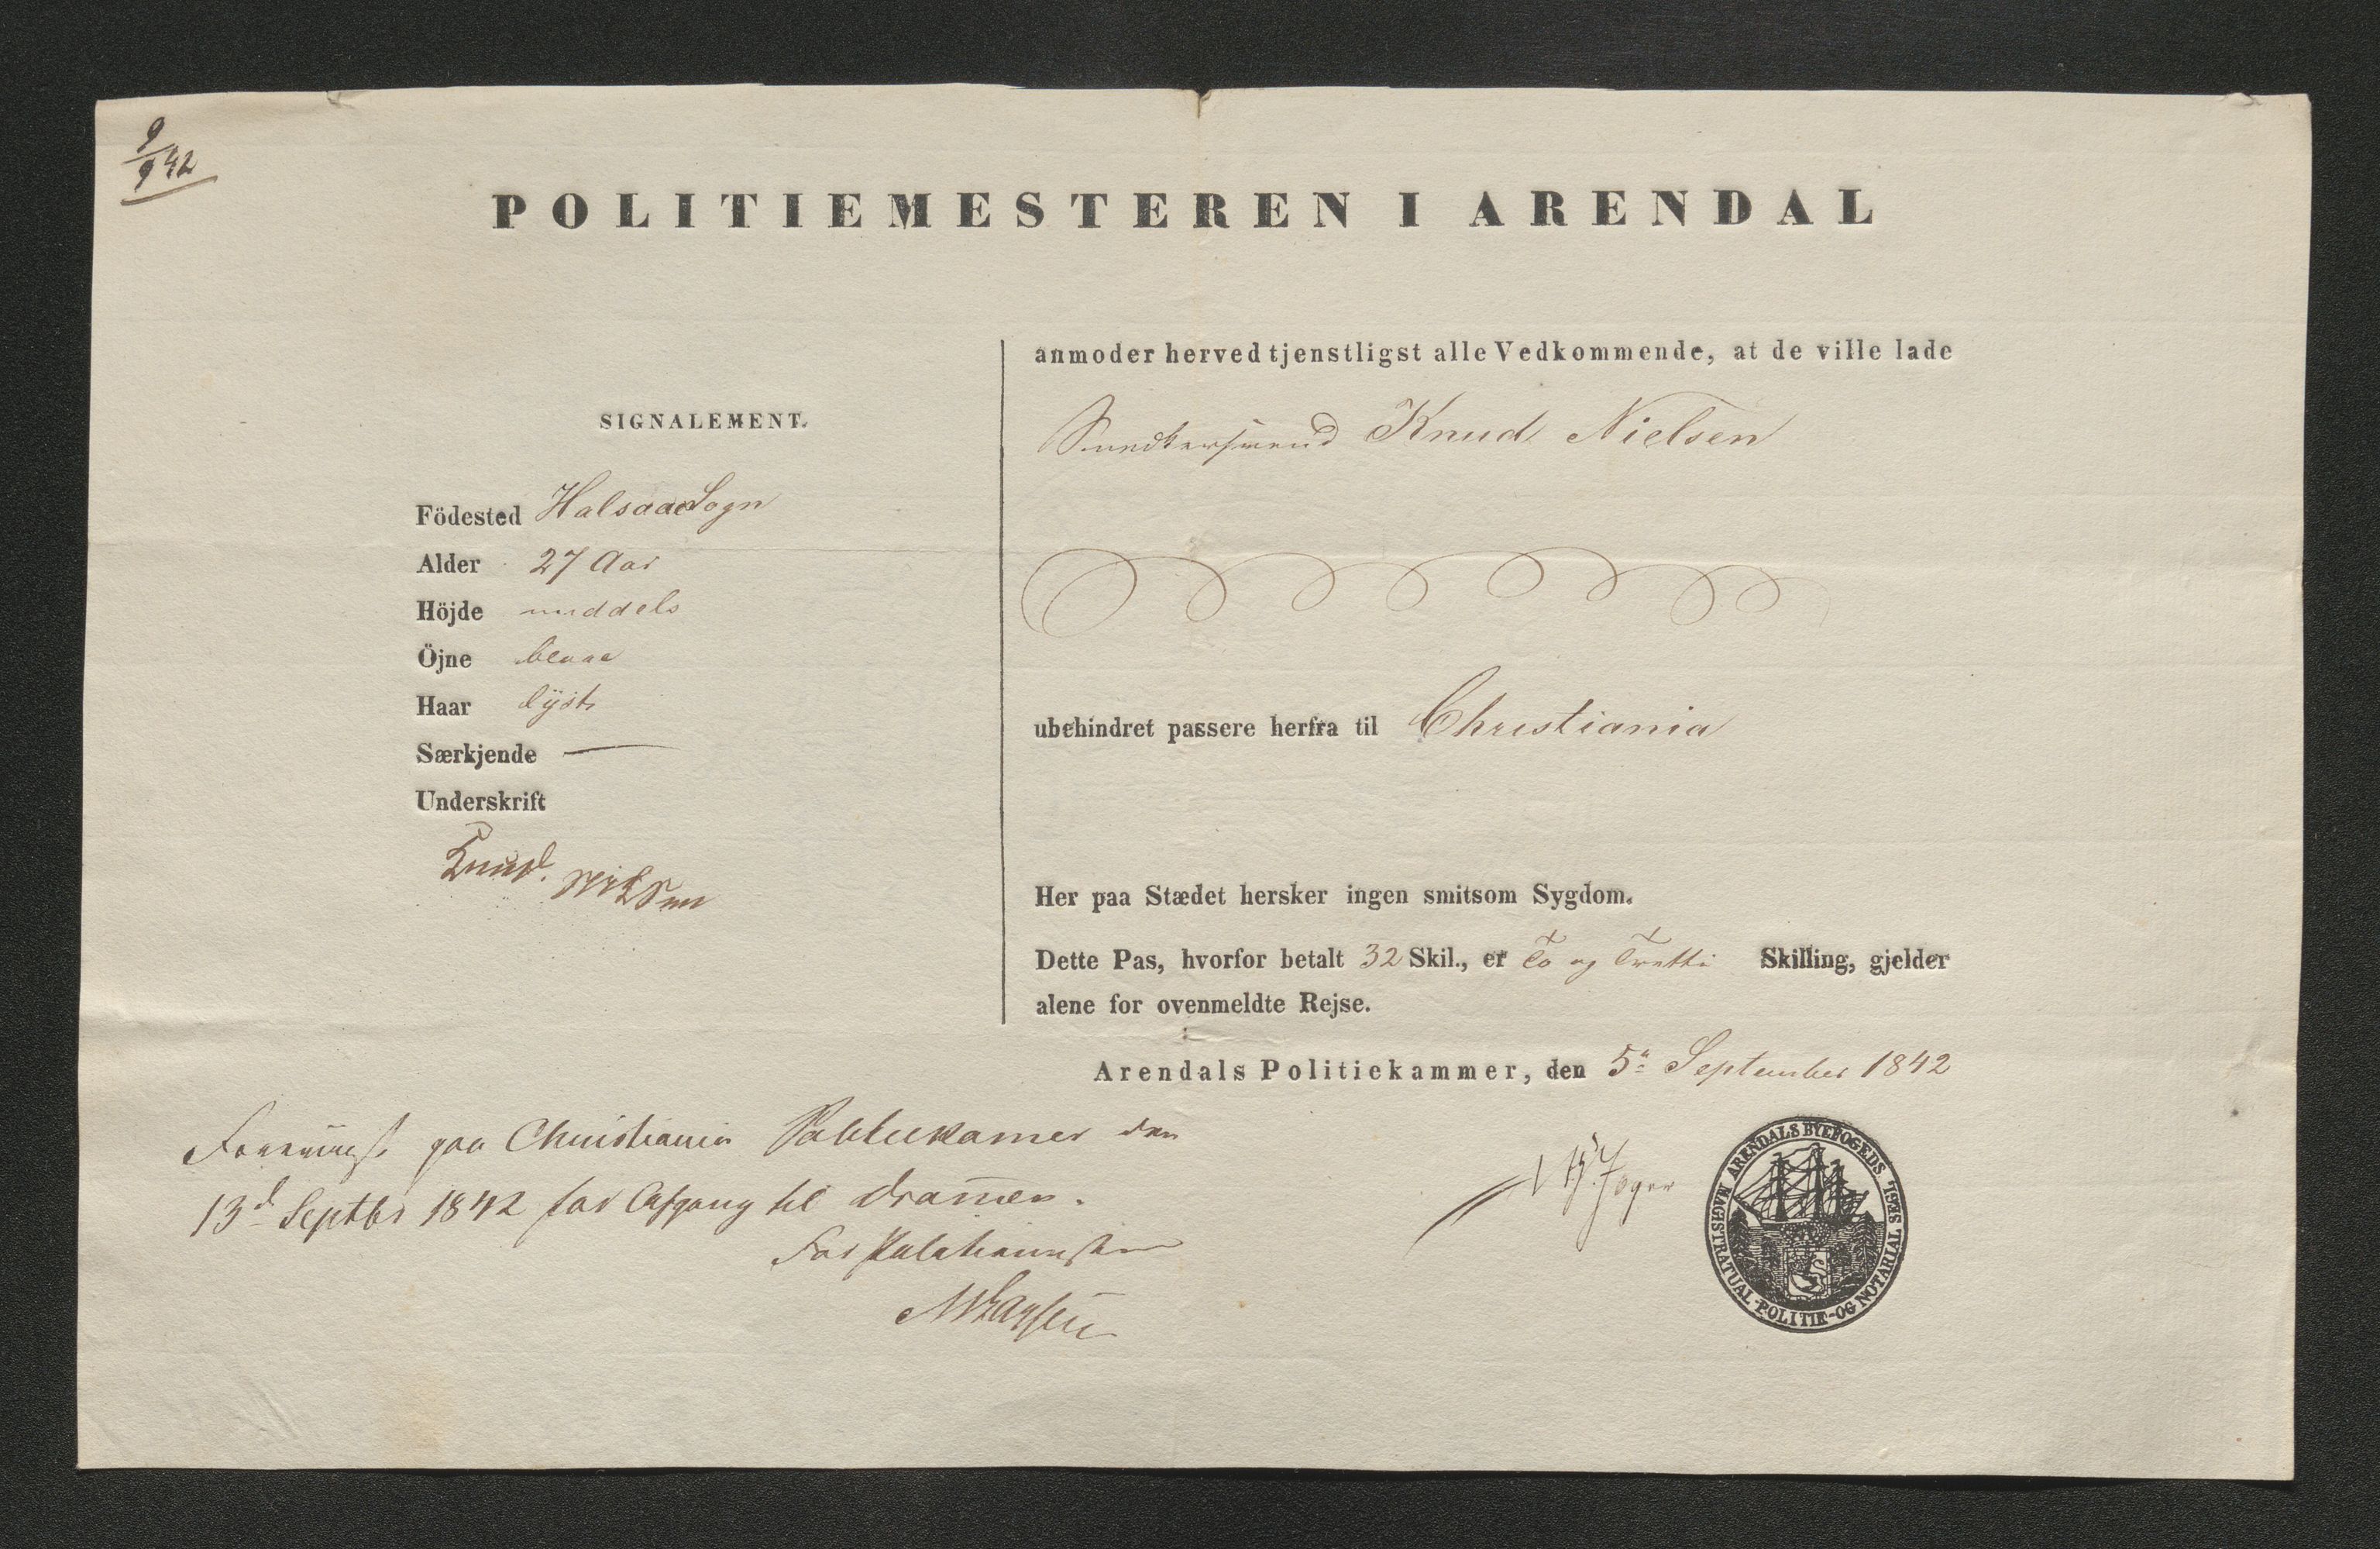 9/9 42
POLITIEMESTEREN I ARENDAL
SIGNALEMENT.
Födested Halsaae Sogn
Alder 27 Aar
Höjde middels
Öjne blaae
Haar lÿst
Særkjende —
Underskrift
Knud. Nielsen
anmoder herved tjenstligst alle Vedkommende, at de ville lade
Snedkersvend Knud Nielsen
ubehindret passere herfra til Christiania
Her paa Stædet hersker ingen smitsom Sygdom.
Dette Pas, hvorfor betalt 32 Skil., er To og Tretti Skilling, gjelder
alene for ovenmeldte Rejse.
Arendals Politiekammer, den 5te September 1842
MAGISTRATUAL-POLITIE-OG NOTARIAL SEGL ARENDALS BYEFOGEDS
Foreviist paa Christiania Politiekamer den
13d Septbr 1842 for Afgang til Dram̄en.
For Politiemesteren